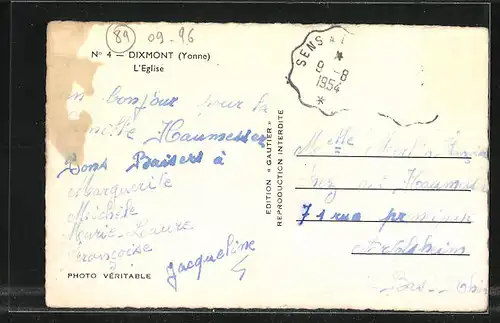 89
09-96
N° 4 — DIXMONT (Yonne)
L'Eglise
SENS A
9-8
1954
un bonjour pour la
famille Haumesser
Bons Baisers à
Marguerite
Michèle
Marie-Laure
Françoise
Jacqueline
PHOTO VÉRITABLE
EDITION « GAUTIER »
REPRODUCTION INTERDITE
Melle
chez
71 rue
Bas-Rhin